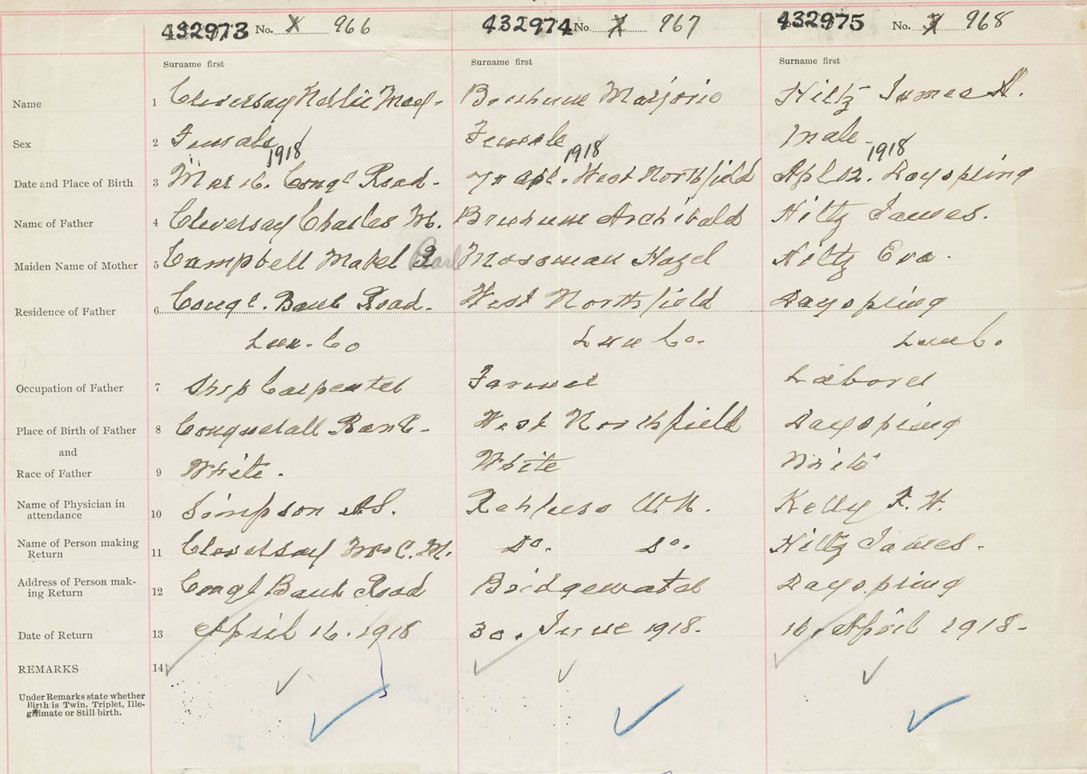 432973 No. X 966 432974 No. X 967 432975 No. X 968
Surname first Surname first Surname first
Name 1 Cleversey Nellie May. Bruhm Marjorie Hiltz James A.
Sex 2 Female Female Male
1918 1918 1918
Date and Place of Birth 3 Mar 16. Conql Road. 7th Apl. West Northfield Apl 12. Dayspring
Name of Father 4 Cleversey Charles M. Archibald Hiltz James.
Maiden Name of Mother 5 Campbell Mabel Pearl Mossman Hazel Hiltz Eva.
Residence of Father 6 Conql. Bank Road. West Northfield Dayspring
Lun. Co Lun Co. Lun Co.
Occupation of Father 7 Ship Carpenter Farmer Laborer
Place of Birth of Father 8 Conquerall Bank. West Northfield Dayspring
and
Race of Father 9 White. White White
Name of Physician in 10 Simpson W.N. Kelly F. W.
attendance
Name of Person making 11 Cleversey Mrs C. M. Do. Do. Hiltz James.
Return
Address of Person mak- 12 Conql Bank Road Bridgewater Dayspring
ing Return
Date of Return 13 April 16. 1918 30. June 1918. 16. April 1918.
REMARKS 14
Under Remarks state whether
Birth is Twin, Triplet, Ille-
gitimate or Still birth.